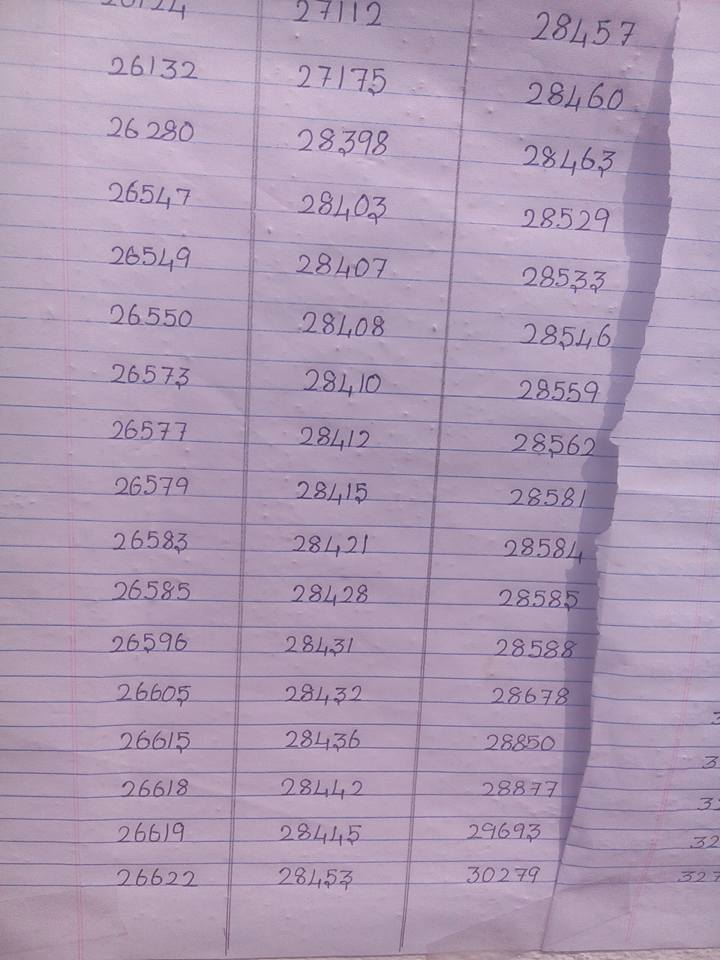 27112 28457
26132 27175 28460
26280 28398 28463
26547 28403 28529
26549 28407 28533
26550 28408 28546
26573 28410 28559
26577 28412 28562
26579 28415 28581
26583 28421 28584
26585 28428 28585
26596 28431 28588
26605 28432 28678
26615 28436 28850
26618 28442 28877
26619 28445 29693
26622 28453 30279